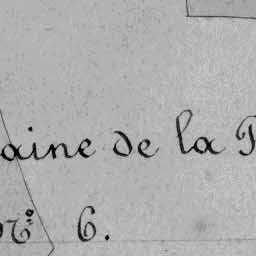 aine de la P
N° 6.